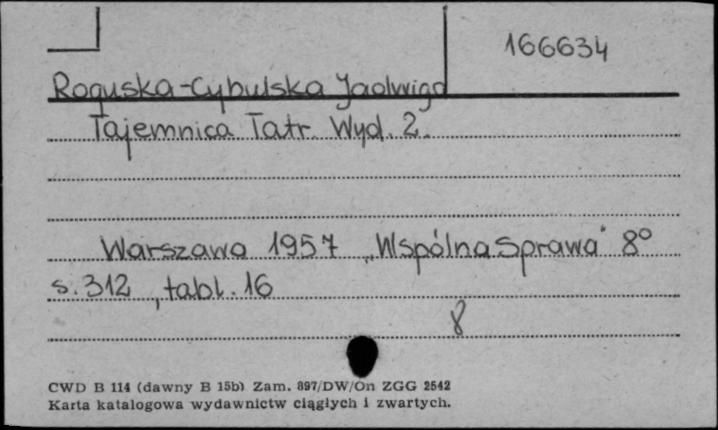 166634
Roguska-Cybulska Jadwiga
Tajemnica Tatr. Wyd. 2.
Warszawa 1957 „Wspólna Sprawa" 8°
s. 312, tabl. 16
8
CWD B 114 (dawny B 15b) Zam. 897/DW/On ZGG 2542
Karta katalogowa wydawnictw ciągłych i zwartych.